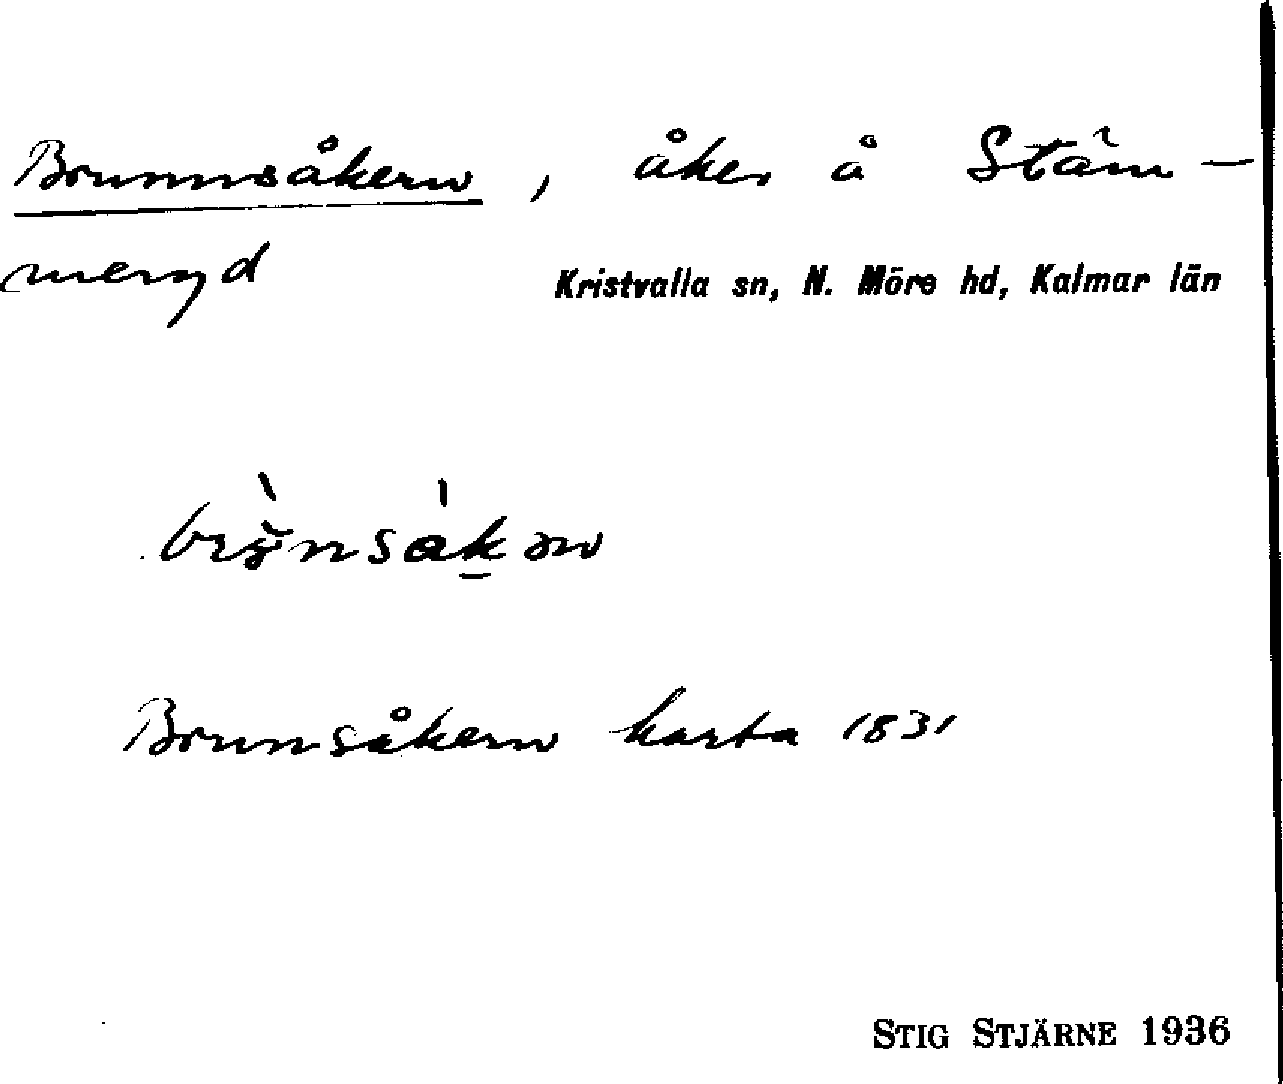 Brunnsåkern, åker å Stäm-
meryd
Kristvalla sn, N. Möre hd, Kalmar län
Brunsåkern karta 1831
STIG STJÄRNE 1936